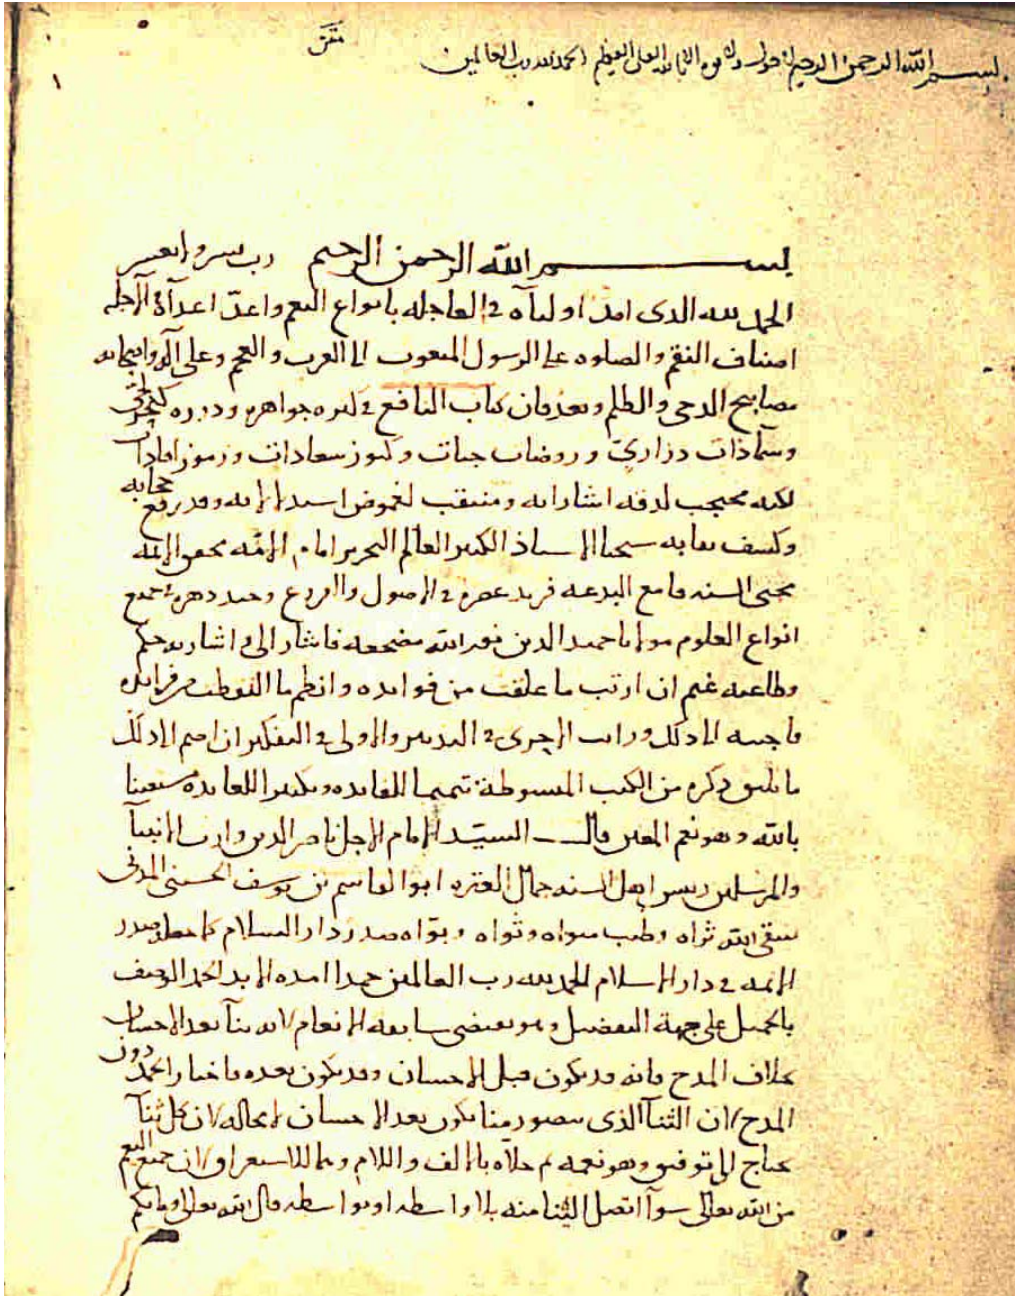 بسم الله الرحمن الرحيم لا حول ولا قوة الا بالله العلي العظيم الحمد لله رب العالمين
١
بسم الله الرحمن الرحيم رب يسر ولا تعسر
الحمد لله الذي امد اولياه في العاجله بانواع النعم واعد اعداه في الآجله
اصناف النقم والصلوه على الرسول المبعوث الى العرب والعجم وعلى آله واصحابه
مصابيح الدجى والظلم وبعد فان كتاب النافع في كثره جواهره ودرره كبحر
وسماذات دراري وروضات جنات وكنوز سعادات ورموز افادات
لكنه محتجب لدقه اشاراته ومنتقب لغموض وقد رفع حجابه
وكشف نقابه شيخنا الاستاذ الكبير العالم النحرير امام الائمه محقق
محيي السنه قامع البدعه فريد عصره في الاصول والفروع وحيد دهره في جميع
انواع العلوم مولانا حميد الدين نور الله مضجعه فاشار الي واشارته حكم
وطاعته غنم ان ارتب ما علقت من فوايده وانظم ما التقطت من فرايده
فاجبته الى ذلك ورايت الاحرى في التدبير والاولى في التفكير ان اضم الى ذلك
ما يليق ذكره من الكتب المبسوطة تتميما للفايده وتكثيرا للعايده مستعينا
بالله وهو نعم المعين قال السيد الامام الاجل ناصر الدين وارث الانبيآ
والمرسلين رييس اهل السنه جمال العتره ابو القاسم بن يوسف الحسيني المدني
سقى الله ثراه وطيب مثواه وبواه صدر دار السلام كما جعله صدر
الائمه في دار الاسلام الحمد لله رب العالمين حمدا امده الابد الحمد الوصف
بالجميل على جهة التفضيل وهو يقتضي سابقه الانعام لانه ثنآ بعد الاحسان
بخلاف المدح فانه قد يكون قبل الاحسان وقد يكون بعده فاختار الحمد دون
المدح لان الثنآ الذي يتصور منا يكون بعد الاحسان لا محاله لان كل ثنآ
يحتاج الى توفيق وهو نعمه ثم حلاه بالالف واللام وهما للاستغراق لان جميع النعم
من الله تعالى سوآ اتصل الينا منه بلا واسطه او بواسطه قال الله تعالى وما بكم